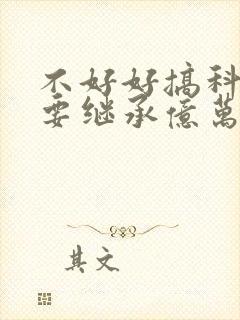 不好好搞科
要继承億萬
其文